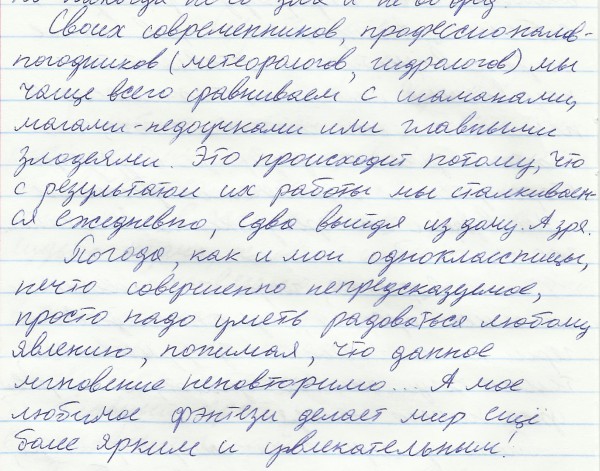 Своих современников, профессионалов-
погодников (метеорологов, гидрологов) мы
чаще всего сравниваем с шаманами,
магами-недоучками или главными
злодеями. Это происходит потому, что
с результатом их работы мы сталкиваем-
ся ежедневно, едва выйдя из дому. А зря.
Погода, как и мои одноклассницы,
нечто совершенно непредсказуемое,
просто надо уметь радоваться любому
явлению, понимая, что данное
мгновение неповторимо... А мое
любимое фэнтези делает мир ещё
более ярким и увлекательным!